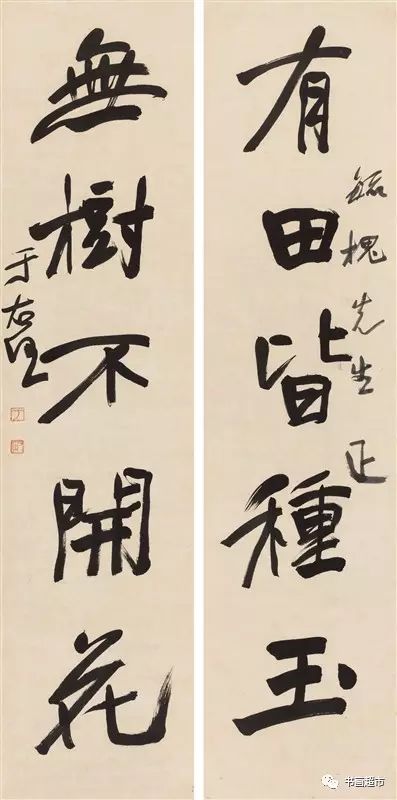 有田皆種玉
槐先生正
無樹不開花
于右任
书画超市